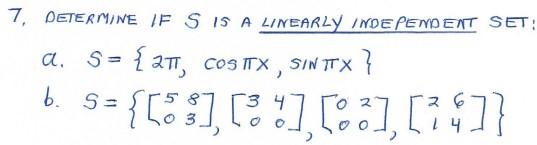 7. DETERMINE IF S IS A LINEARLY INDEPENDENT SET:
a. S = { 2π, COS πX, SIN πX }
b. S = { [5 8; 0 3], [3 4; 0 0], [0 2; 0 0], [2 6; 1 4] }